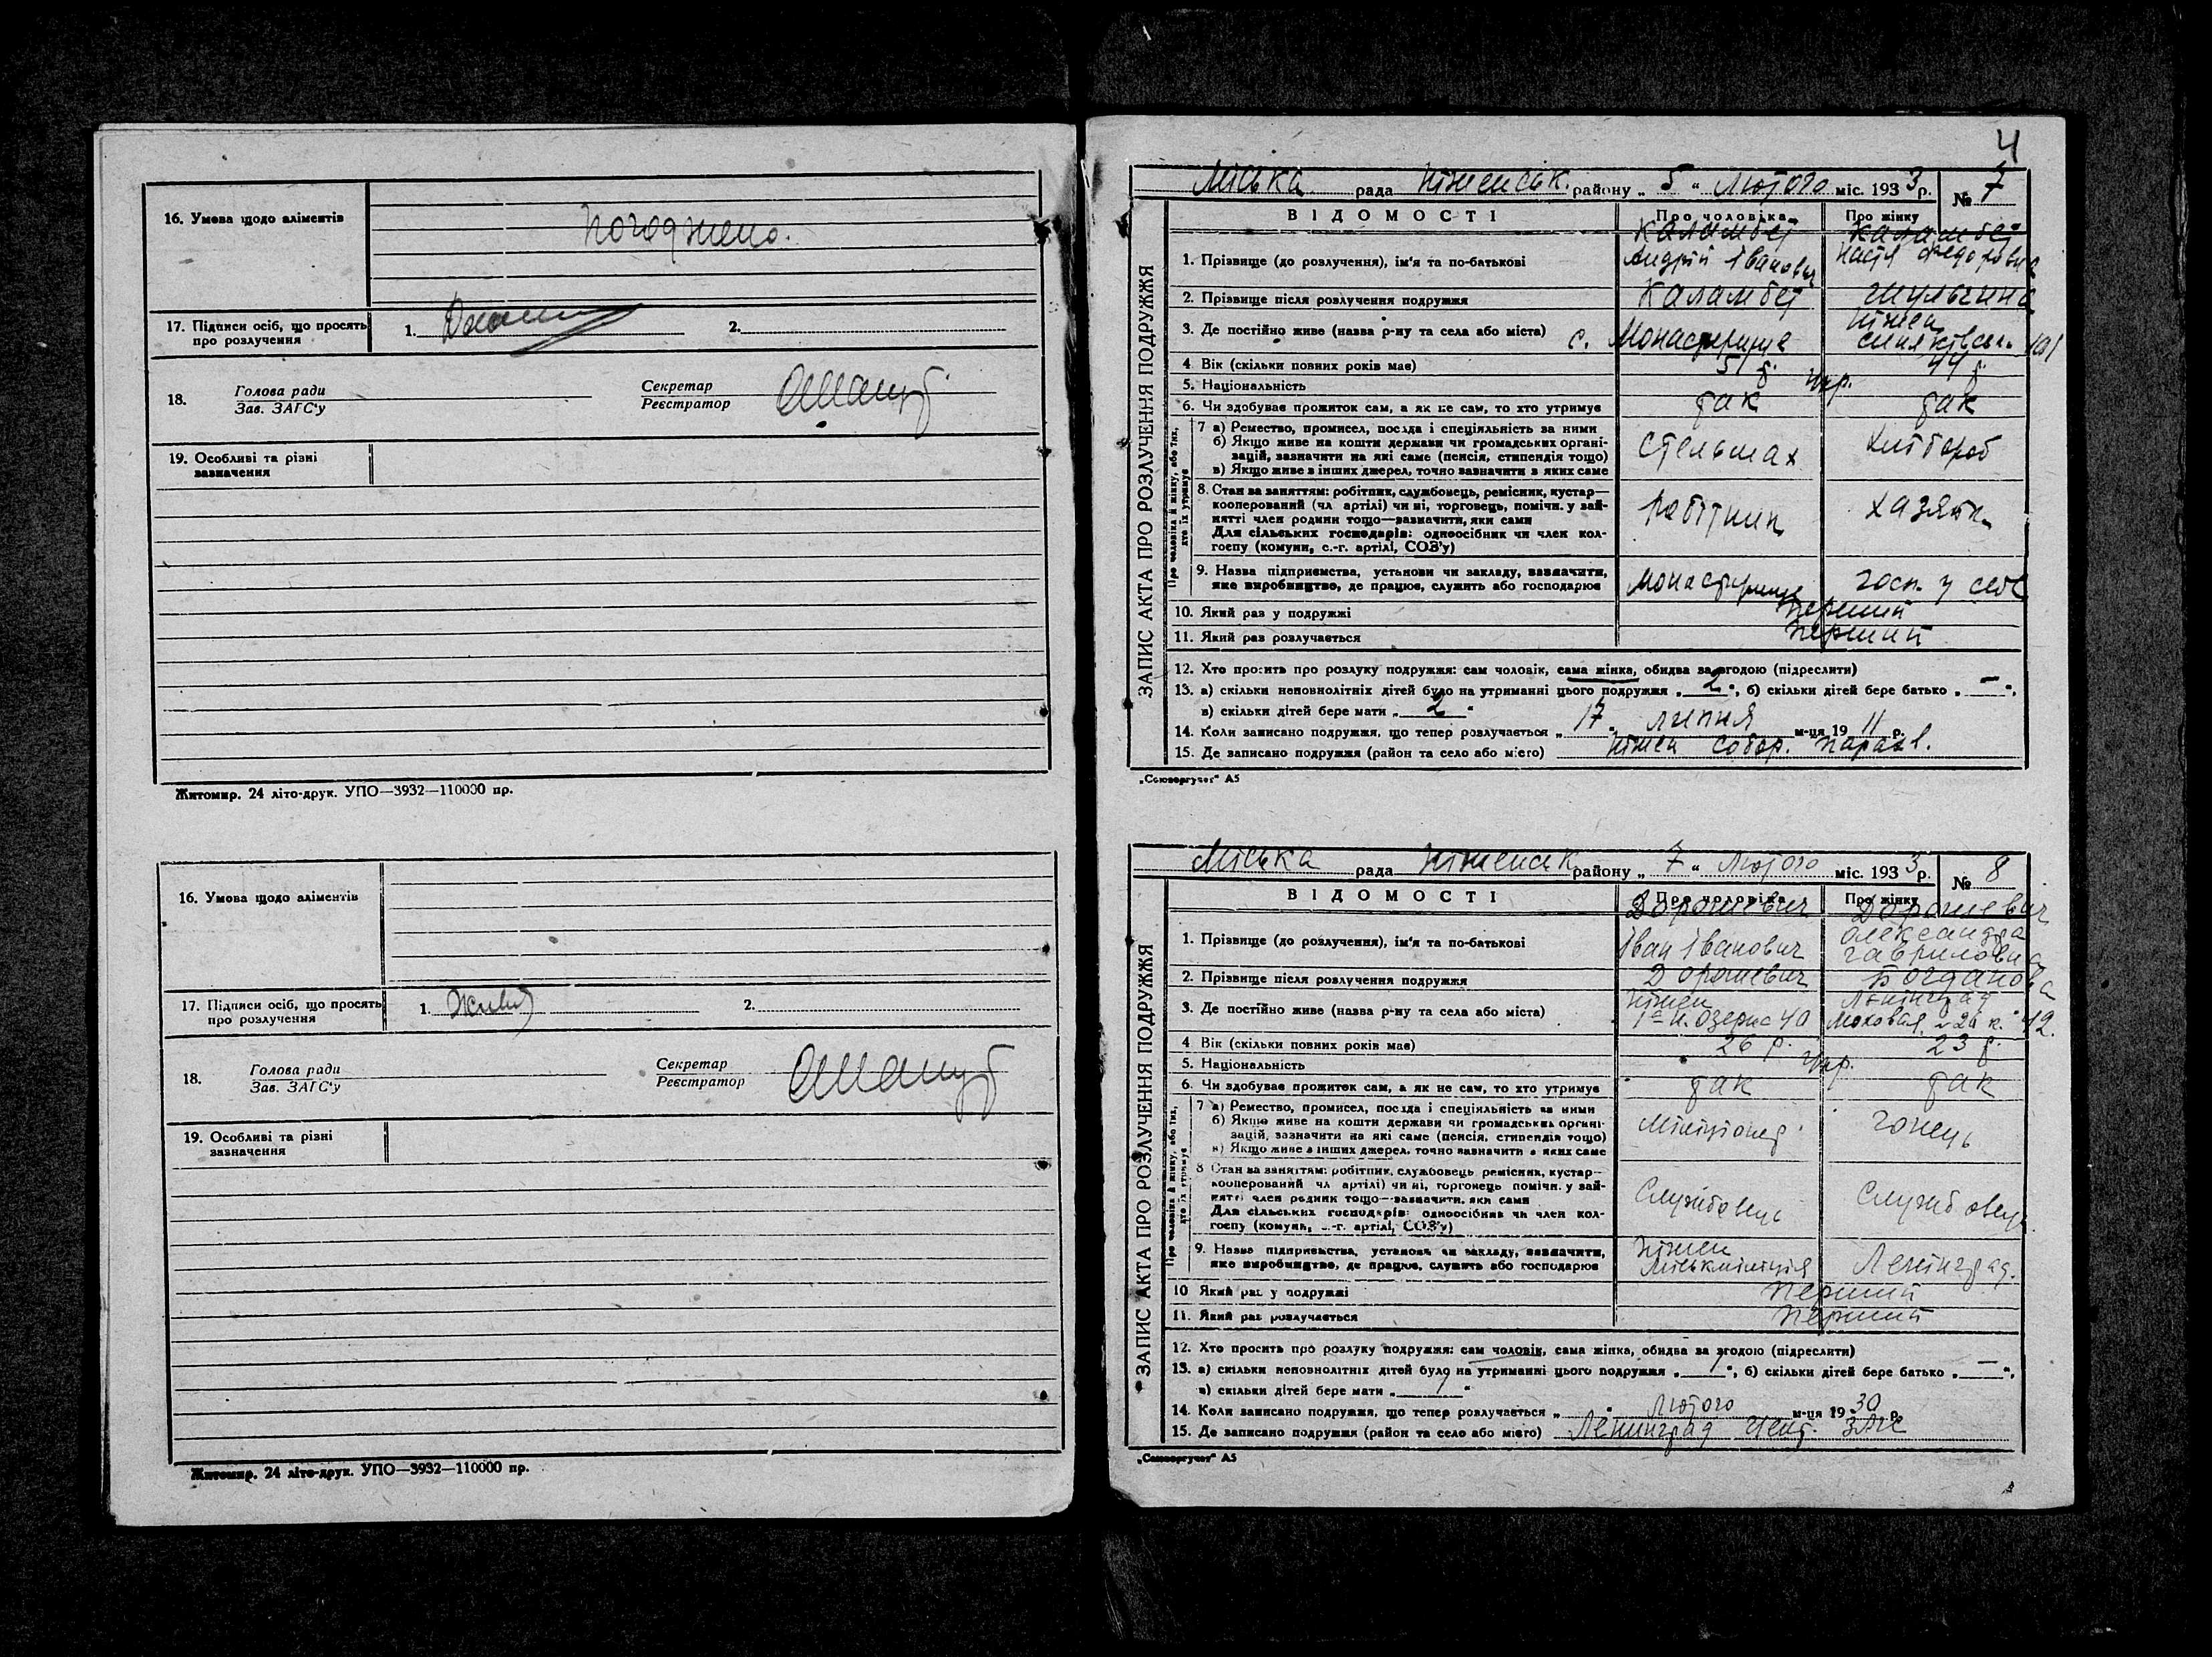 16. Умова щодо аліментів
Погоджено.
17. Підписи осіб, що просять про розлучення
1. 2.
18. Голова ради
Зав. ЗАГС'у
Секретар
Реєстратор
19. Особливі та різні зазначення
Житомир. 24 літо-друк. УПО—3932—110000 пр.
16. Умова щодо аліментів
17. Підписи осіб, що просять про розлучення
1. 2.
18. Голова ради
Зав. ЗАГС'у
Секретар
Реєстратор
19. Особливі та різні зазначення
Житомир. 24 літо-друк. УПО—3932—110000 пр.
4
Міська рада Ніженськ. району „ 5 “ Лютого міс. 1933 р. № 7
ЗАПИС АКТА ПРО РОЗЛУЧЕННЯ ПОДРУЖЖЯ
ВІДОМОСТІ Про чоловіка Про жінку
Каламбет Каламбет
1. Прізвище (до розлучення), ім'я та по-батькові Андрій Іванович Настя Федоровна
2. Прізвище після розлучення подружжя Каламбет Шульгина
3. Де постійно живе (назва р-ну та села або міста) с. Монастирище Ніжен Синяківська 101
4 Вік (скільки повних років має) 51 р. 44 р.
5. Національність Укр.
6. Чи здобуває прожиток сам, а як не сам, то хто утримує так так
Про чоловіка й жінку, або тих, хто їх утримує
7 а) Ремество, промисел, посада і спеціяльність за ними
б) Якщо живе на кошти держави чи громадських органі-
зацій, зазначити на які саме (пенсія, стипендія тощо)
в) Якщо живе з інших джерел, точно зазначити з яких саме
Стельмах Хлібороб
8. Стан за заняттям: робітник, службовець, ремісник, кустар—
кооперований (чл артілі) чи ні, торговець, помічн. у зай-
нятті член родини тощо—зазначити, яки сами
Для сільських господарів: одноосібник чи член кол-
госпу (комуни, с.-г. артілі, СОЗ'у)
Робітник хазяїн
9. Назва підприємства, установи чи закладу, зазначити,
яке виробництво, де працює, служить або господарює
Монастирище госп. у себе
10. Який раз у подружжі Перший
11. Який раз розлучається Перший
12. Хто просить про розлуку подружжя: сам чоловік, сама жінка, обидва за згодою (підреслити)
13. а) скільки неповнолітніх дітей було на утриманні цього подружжя „ 2 “, б) скільки дітей бере батько „ — “,
в) скільки дітей бере мати „ 2 “
14. Коли записано подружжя, що тепер розлучається „ 17 “ липня м-ця 1911 р.
15. Де записано подружжя (район та село або місто) Ніжен Собор. Парахв.
„Союзоргучет“ А5
Міська рада Ніженськ району „ 7 “ Лютого міс. 1933 р. № 8
ЗАПИС АКТА ПРО РОЗЛУЧЕННЯ ПОДРУЖЖЯ
ВІДОМОСТІ Про чоловіка Про жінку
Дорошевич Дорошевич
1. Прізвище (до розлучення), ім'я та по-батькові Іван Іванович Олександра Гавриловна
2. Прізвище після розлучення подружжя Дорошевич Богданова
3. Де постійно живе (назва р-ну та села або міста) Ніжен Озерна 40 Ленінград Моховая
4 Вік (скільки повних років має) 26 р. 23 р.
5. Національність Укр.
6. Чи здобуває прожиток сам, а як не сам, то хто утримує так так
Про чоловіка й жінку, або тих, хто їх утримує
7 а) Ремество, промисел, посада і спеціяльність за ними
б) Якщо живе на кошти держави чи громадських органі-
зацій, зазначити на які саме (пенсія, стипендія тощо)
в) Якщо живе з інших джерел, точно зазначити з яких саме
Міліціонер гонець
8 Стан за заняттям: робітник, службовець, ремісник, кустар—
кооперований чл артілі) чи ні, торговець помічн. у зай-
нятті член родини тощо—зазначити, яки сами
Для сільських господарів: одноосібник чи член кол-
госпу (комуни, с.-г. артілі, СОЗ'у)
Службовець Службовець
9. Назва підприємства, установи чи закладу, зазначити,
яке виробництво, де працює, служить або господарює
Ніжен Міськміліція Ленінград.
10 Який раз у подружжі Перший
11. Який раз розлучається Перший
12. Хто просить про розлуку подружжя: сам чоловік, сама жінка, обидва за згодою (підреслити)
13. а) скільки неповнолітніх дітей було на утриманні цього подружжя „ 1 “, б) скільки дітей бере батько „ — “,
в) скільки дітей бере мати „ 1 “
14. Коли записано подружжя, що тепер розлучається „ “ Лютого м-ця 1930 р.
15. Де записано подружжя (район та село або місто) Ленинград Цент. ЗАГС
„Союзоргучет“ А5